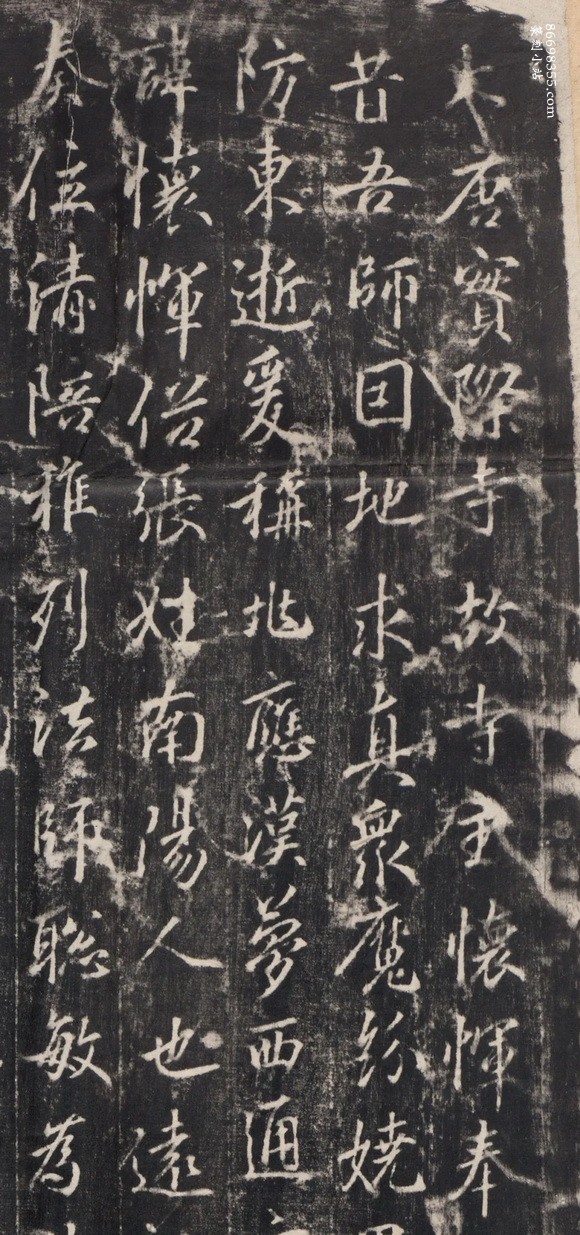 大唐實際寺故寺主懷惲奉
昔吾師因地求真衆魔紛嬈
防東逝爰稱兆應漢夢西通
諱懷惲俗張姓南陽人也遠
秦位清階稚列法師聡敏為
86698355.com
篆刻小站